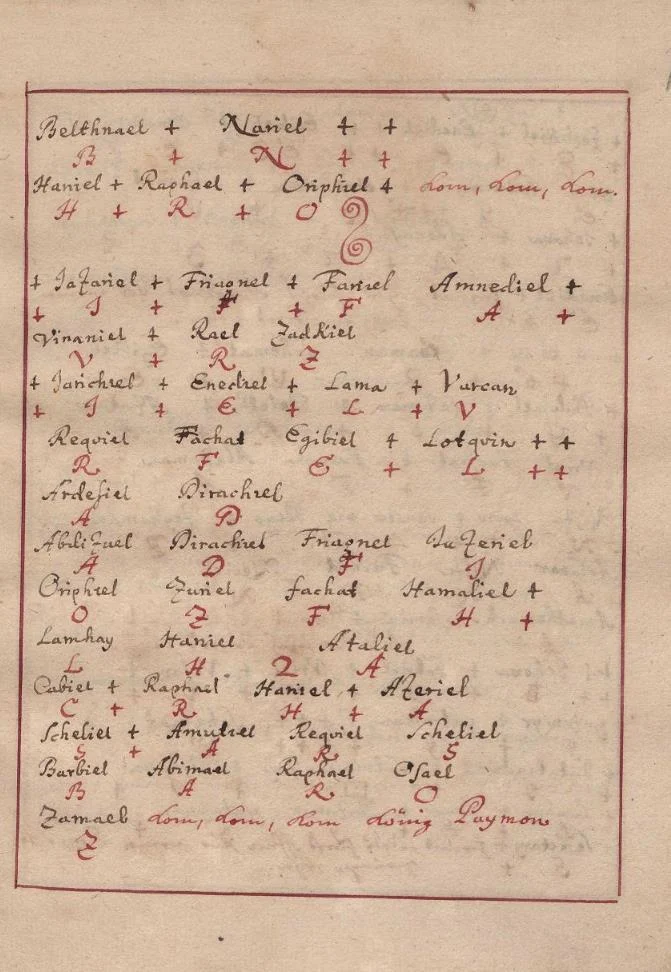 Belthnael + Nariel + +
B + N + +
Haniel + Raphael + Oriphiel + kom, kom, kom.
H + R + O
+ Jazariel + Friagnel + Fariel Amnediel +
+ J + F + F A +
Vinaniel + Rael Zadkiel
V + R Z
+ Jarichiel + Enediel + Lama + Varcan
+ J + E + L + V
Reqviel Fachat Egibiel + Lotqvin + +
R F E + L + +
Ardesiel Dirachiel
A D
Abdizuel Dirachiel Friagnel Jazeriel
A D F J
Oriphiel Zuriel fachat Hamaliel +
O Z F H +
Lamhay Haniel Ataliel
L H 2 A
Cabiel + Raphael Haniel + Azeriel
C + R H + A
Scheliel + Amutiel Reqviel Scheliel
S + A R S
Barbiel Abimael Raphael Osael
B A R O
Zamael kom, kom, kom König Paymon
Z